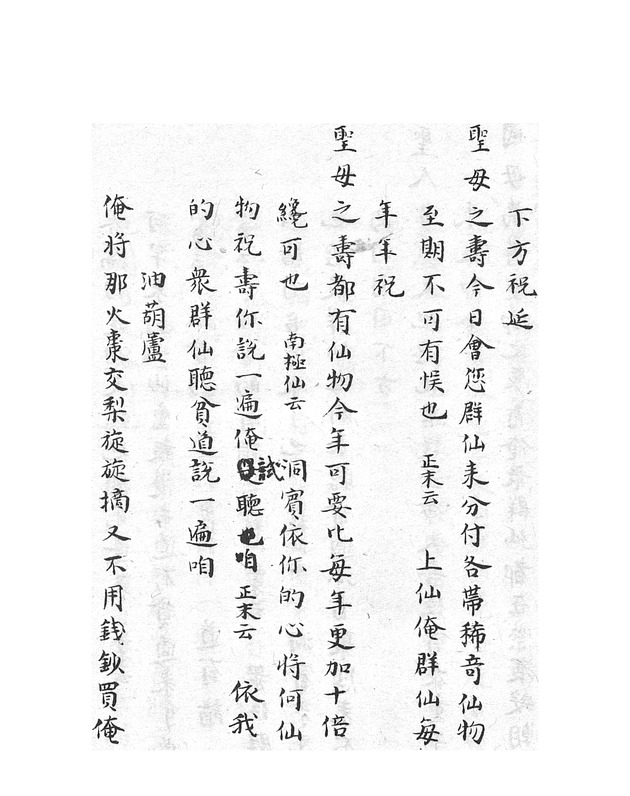 下方祝延
聖母之壽今日會您群仙來分付各帶稀奇仙物
至期不可有悞也 正末云 上仙俺群仙每
年年祝
聖母之壽都有仙物今年可要比每年更加十倍
纔可也 南極仙云 洞賓依你的心將何仙
物祝壽你說一遍俺試聽咱 正末云 依我
的心衆群仙聽貧道說一遍咱
油葫蘆
俺將那火棗交梨旋旋摘又不用錢鈔買俺